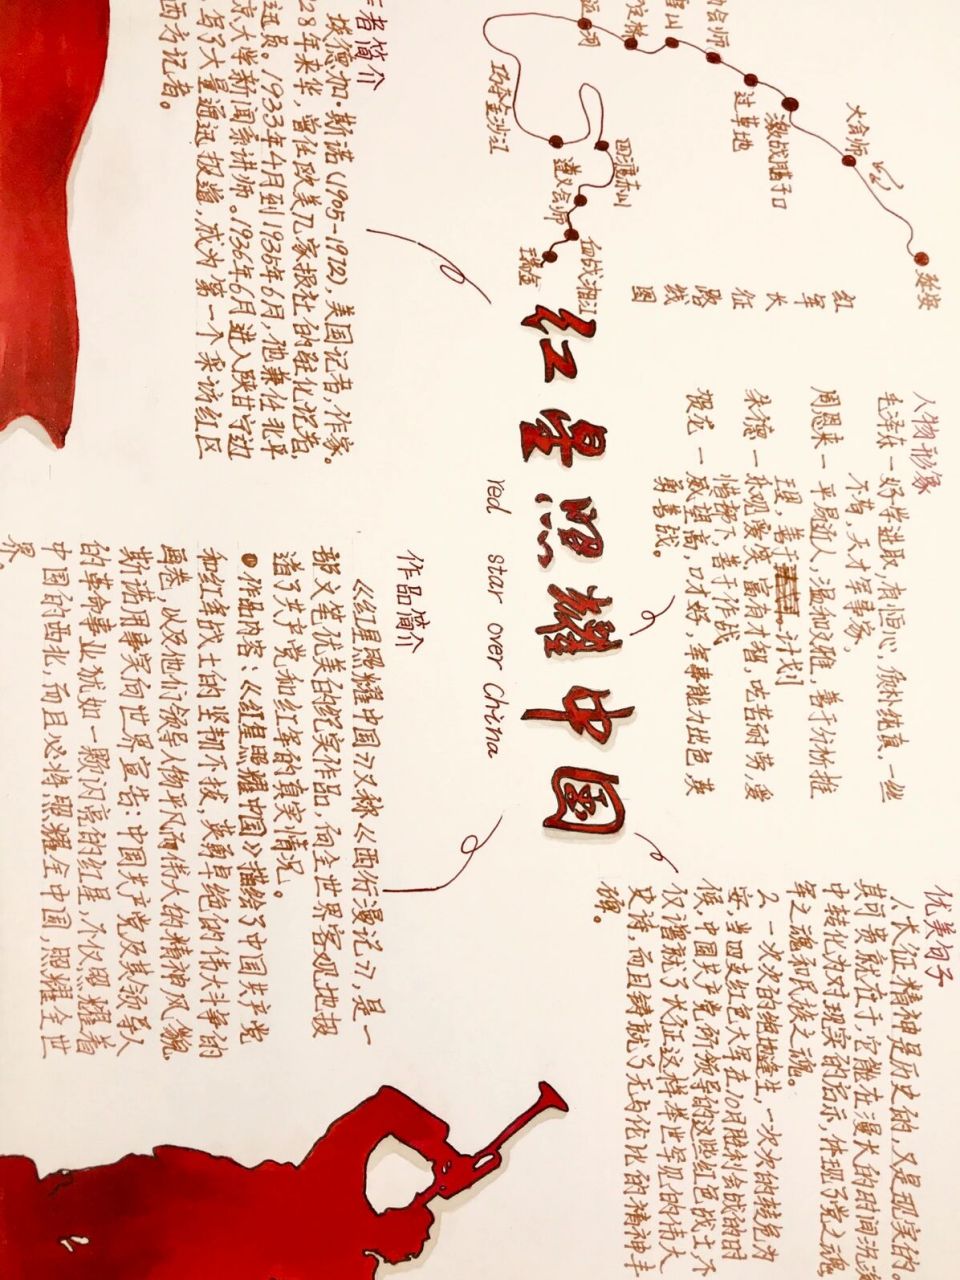 红军长征路线图
延安
大会师
激战腊子口
过草地
巧夺金沙江
四渡赤水
遵义会师
血战湘江
瑞金
人物形象
毛泽东—好学进取,有恒心,质朴纯真,一丝
不苟,天才军事家,
周恩来—平易近人,温和文雅,善于分析推
理,善于计划
朱德—乐观爱笑,富有才智,吃苦耐劳,爱
惜部下,善于作战
贺龙—威望高,口才好,军事能力出色,英
勇善战。
优美句子
1.长征精神是历史的,又是现实的
其可贵就在于,它能在漫长的时间洗涤
中转化为对现实的启示,体现了党之魂
军之魂和民族之魂。
2.一次次的绝地逢生,一次次的转危为
安,当四支红色大军在10月胜利会战的时
候,中国共产党所领导的这些红色战士,不
仅谱就了长征这样举世罕见的伟大
史诗,而且铸就了无与伦比的精神丰
碑。
红星照耀中国
red star over China
者简介
埃德加·斯诺(1905-1972),美国记者,作家。
28年来华,曾任欧美几家报社的驻华记者,
迅员。1933年4月到1935年6月,他兼任北平
京大学新闻系讲师。1936年6月进入陕甘宁边
写了大量通迅报道,成为第一个采访红区
西方记者。
作品简介
《红星照耀中国》又称《西行漫记》,是一
部文笔优美的纪实作品,向全世界客观地报
道了共产党和红军的真实情况。
作品内容:《红星照耀中国》描绘了中国共产党
和红军战士的坚韧不拔,英勇卓绝的伟大斗争的
画卷,以及他们领导人物平凡而伟大的精神风貌
斯诺用事实向世界宣告:中国共产党及其领导人
的革命事业犹如一颗闪亮的红星,不仅照耀着
中国的西北,而且必将照耀全中国,照耀全世
界.